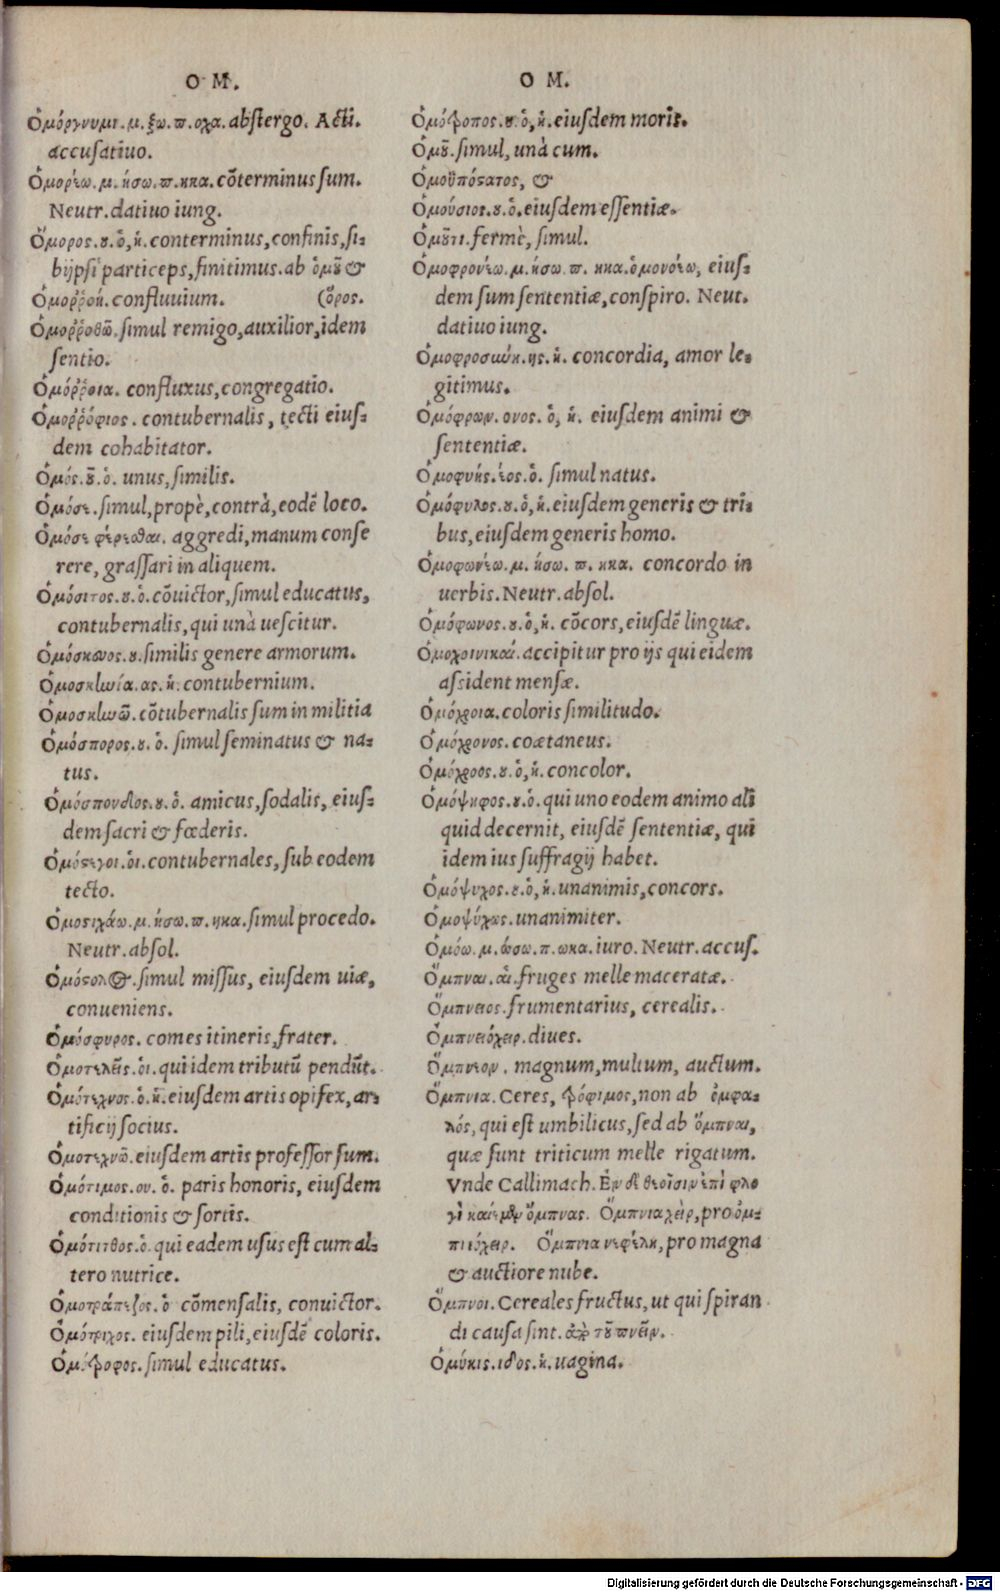 O M.
Ὀμόργνυμι. μ. ξω. π. οχα. abstergo. Acti.
accusatiuo.
Ὁμορέω. μ. ήσω. π. ηκα. cōterminus sum.
Neutr. datiuo iung.
Ὅμορος. ου. ὁ, ἡ. conterminus, confinis, si-
bijpsi particeps, finitimus. ab ὁμοῦ &
Ὁμοῤῥοή. confluuium. (ὅρος.
Ὁμοῤῥοθῶ. simul remigo, auxilior, idem
sentio.
Ὁμόῤῥοια. confluxus, congregatio.
Ὁμοῤῥόφιος. contubernalis, tecti eius-
dem cohabitator.
Ὁμός. οῦ. ὁ. unus, similis.
Ὁμόσε. simul, propè, contrà, eodē loco.
Ὁμόσε φέρεσθαι. aggredi, manum conse
rere, grassari in aliquem.
Ὁμόσιτος. ου. ὁ. cōuictor, simul educatus,
contubernalis, qui unà uescitur.
Ὁμόσκευος. ου. similis genere armorum.
Ὁμοσκηνία. ας. ἡ. contubernium.
Ὁμοσκηνῶ. cōtubernalis sum in militia
Ὁμόσπορος. ου. ὁ. simul seminatus & na-
tus.
Ὁμόσπονδος. ου. ὁ. amicus, sodalis, eius-
dem sacri & fœderis.
Ὁμόστεγοι. οἱ. contubernales, sub eodem
tecto.
Ὁμοστιχάω. μ. ήσω. π. ηκα. simul procedo.
Neutr. absol.
Ὁμόστολος. simul missus, eiusdem uiæ,
conueniens.
Ὁμόσφυρος. comes itineris, frater.
Ὁμοτελεῖς. οἱ. qui idem tributū pendūt.
Ὁμότεχνος. ὁ. ἡ. eiusdem artis opifex, ar-
tificij socius.
Ὁμοτεχνῶ. eiusdem artis professor sum.
Ὁμότιμος. ου. ὁ. paris honoris, eiusdem
conditionis & sortis.
Ὁμότιτθος. ὁ. qui eadem usus est cum al-
tero nutrice.
Ὁμοτράπεζος. ὁ cōmensalis, conuictor.
Ὁμότριχος. eiusdem pili, eiusdē coloris.
Ὁμότροφος. simul educatus.
O M.
Ὁμότροπος. ου. ὁ, ἡ. eiusdem moris.
Ὁμοῦ. simul, unà cum.
Ὁμοϋπόστατος, &
Ὁμούσιος. ου. ὁ. eiusdem essentiæ.
Ὁμοῦτι. fermè, simul.
Ὁμοφρονέω. μ. ήσω. π. ηκα. ὁμονοέω, eius-
dem sum sententiæ, conspiro. Neut.
datiuo iung.
Ὁμοφροσύνη. ης. ἡ. concordia, amor le-
gitimus.
Ὁμόφρων. ονος. ὁ, ἡ. eiusdem animi &
sententiæ.
Ὁμοφυής. έος. ὁ. simul natus.
Ὁμόφυλος. ου. ὁ, ἡ. eiusdem generis & tri-
bus, eiusdem generis homo.
Ὁμοφωνέω. μ. ήσω. π. ηκα. concordo in
uerbis. Neutr. absol.
Ὁμόφωνος. ου. ὁ, ἡ. cōcors, eiusdē linguæ.
Ὁμοχοινικαί. accipitur pro ijs qui eidem
assident mensæ.
Ὁμόχροια. coloris similitudo.
Ὁμόχρονος. coætaneus.
Ὁμόχροος. ου. ὁ, ἡ. concolor.
Ὁμόψηφος. ου. ὁ. qui uno eodem animo ali
quid decernit, eiusdē sententiæ, qui
idem ius suffragij habet.
Ὁμόψυχος. ου. ὁ, ἡ. unanimis, concors.
Ὁμοψύχως. unanimiter.
Ὀμόω. μ. ώσω. π. ωκα. iuro. Neutr. accus.
Ὄμπναι. αἱ. fruges melle maceratæ.
Ὄμπνειος. frumentarius, cerealis.
Ὀμπνειόχειρ. diues.
Ὄμπνεον. magnum, multum, auctum.
Ὄμπνια. Ceres, τρόφιμος, non ab ὀμφα-
λός, qui est umbilicus, sed ab ὄμπναι,
quæ sunt triticum melle rigatum.
Vnde Callimach. Ἐν δὲ θεοῖσιν ἐπὶ φλο
γὶ καίεμεν ὄμπνας. Ὄμπνια χεὶρ, pro ὀμ-
πιόχειρ. Ὄμπνια νεφέλη, pro magna
& auctiore nube.
Ὄμπνοι. Cereales fructus, ut qui spiran
di causa sint. παρὰ τοῦ πνεῖν.
Ὀμύκις. ιδος. ἡ. uagina.
Digitalisierung gefördert durch die Deutsche Forschungsgemeinschaft - DFG